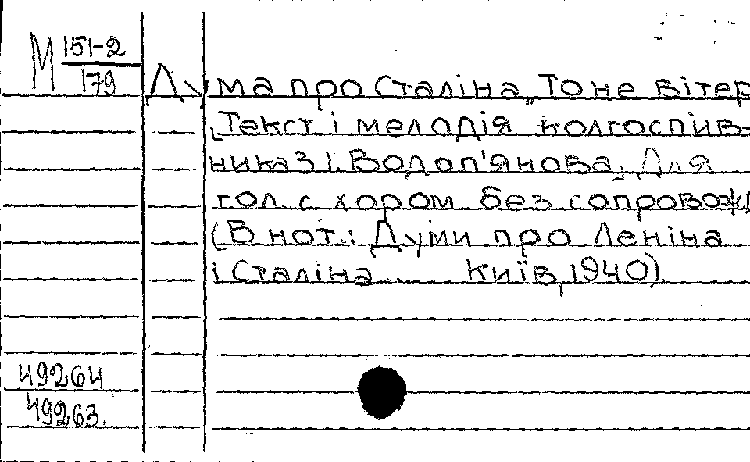 М 151-2
179
Дума про Сталіна „То не вітер
[Текст і мелодія колгоспив-
ника З.І. Водоп'янова. Для
гол. с хором без сопровож
(В нот.: Думи про Леніна
і Сталіна ... Київ, 1940)
49264
49263.